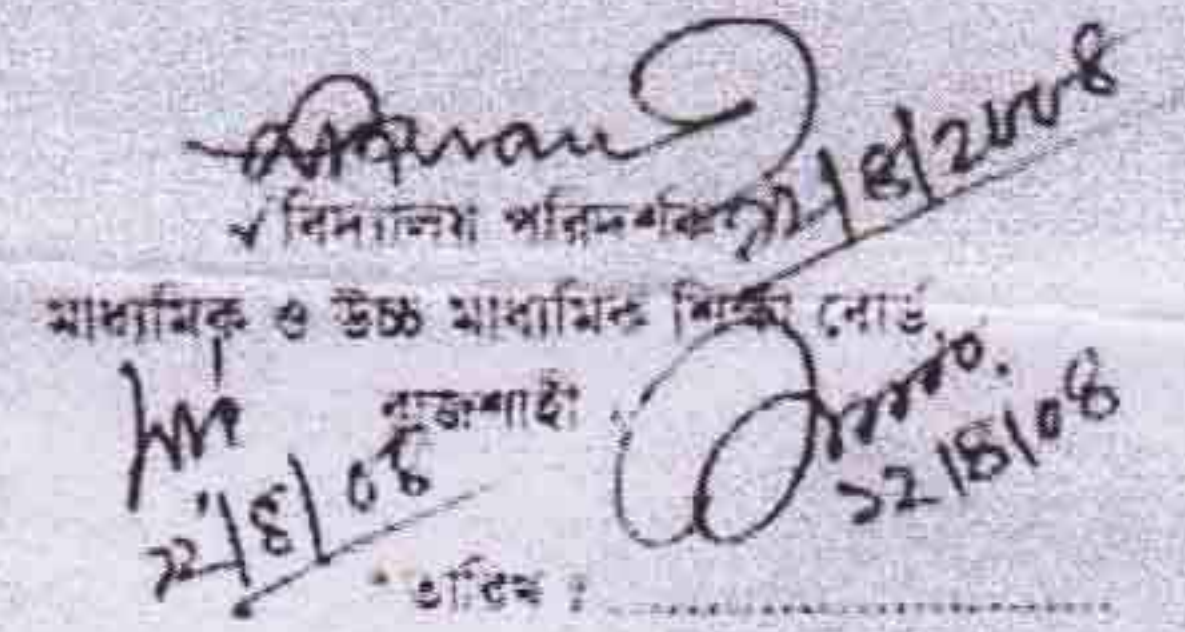 ১২/৪/২০০৪
✓ বিদ্যালয় পরিদর্শক
মাধ্যমিক ও উচ্চ মাধ্যমিক শিক্ষা বোর্ড,
রাজশাহী
১২/৪/০৪
১২/৪/০৪
তারিখ : ..............................